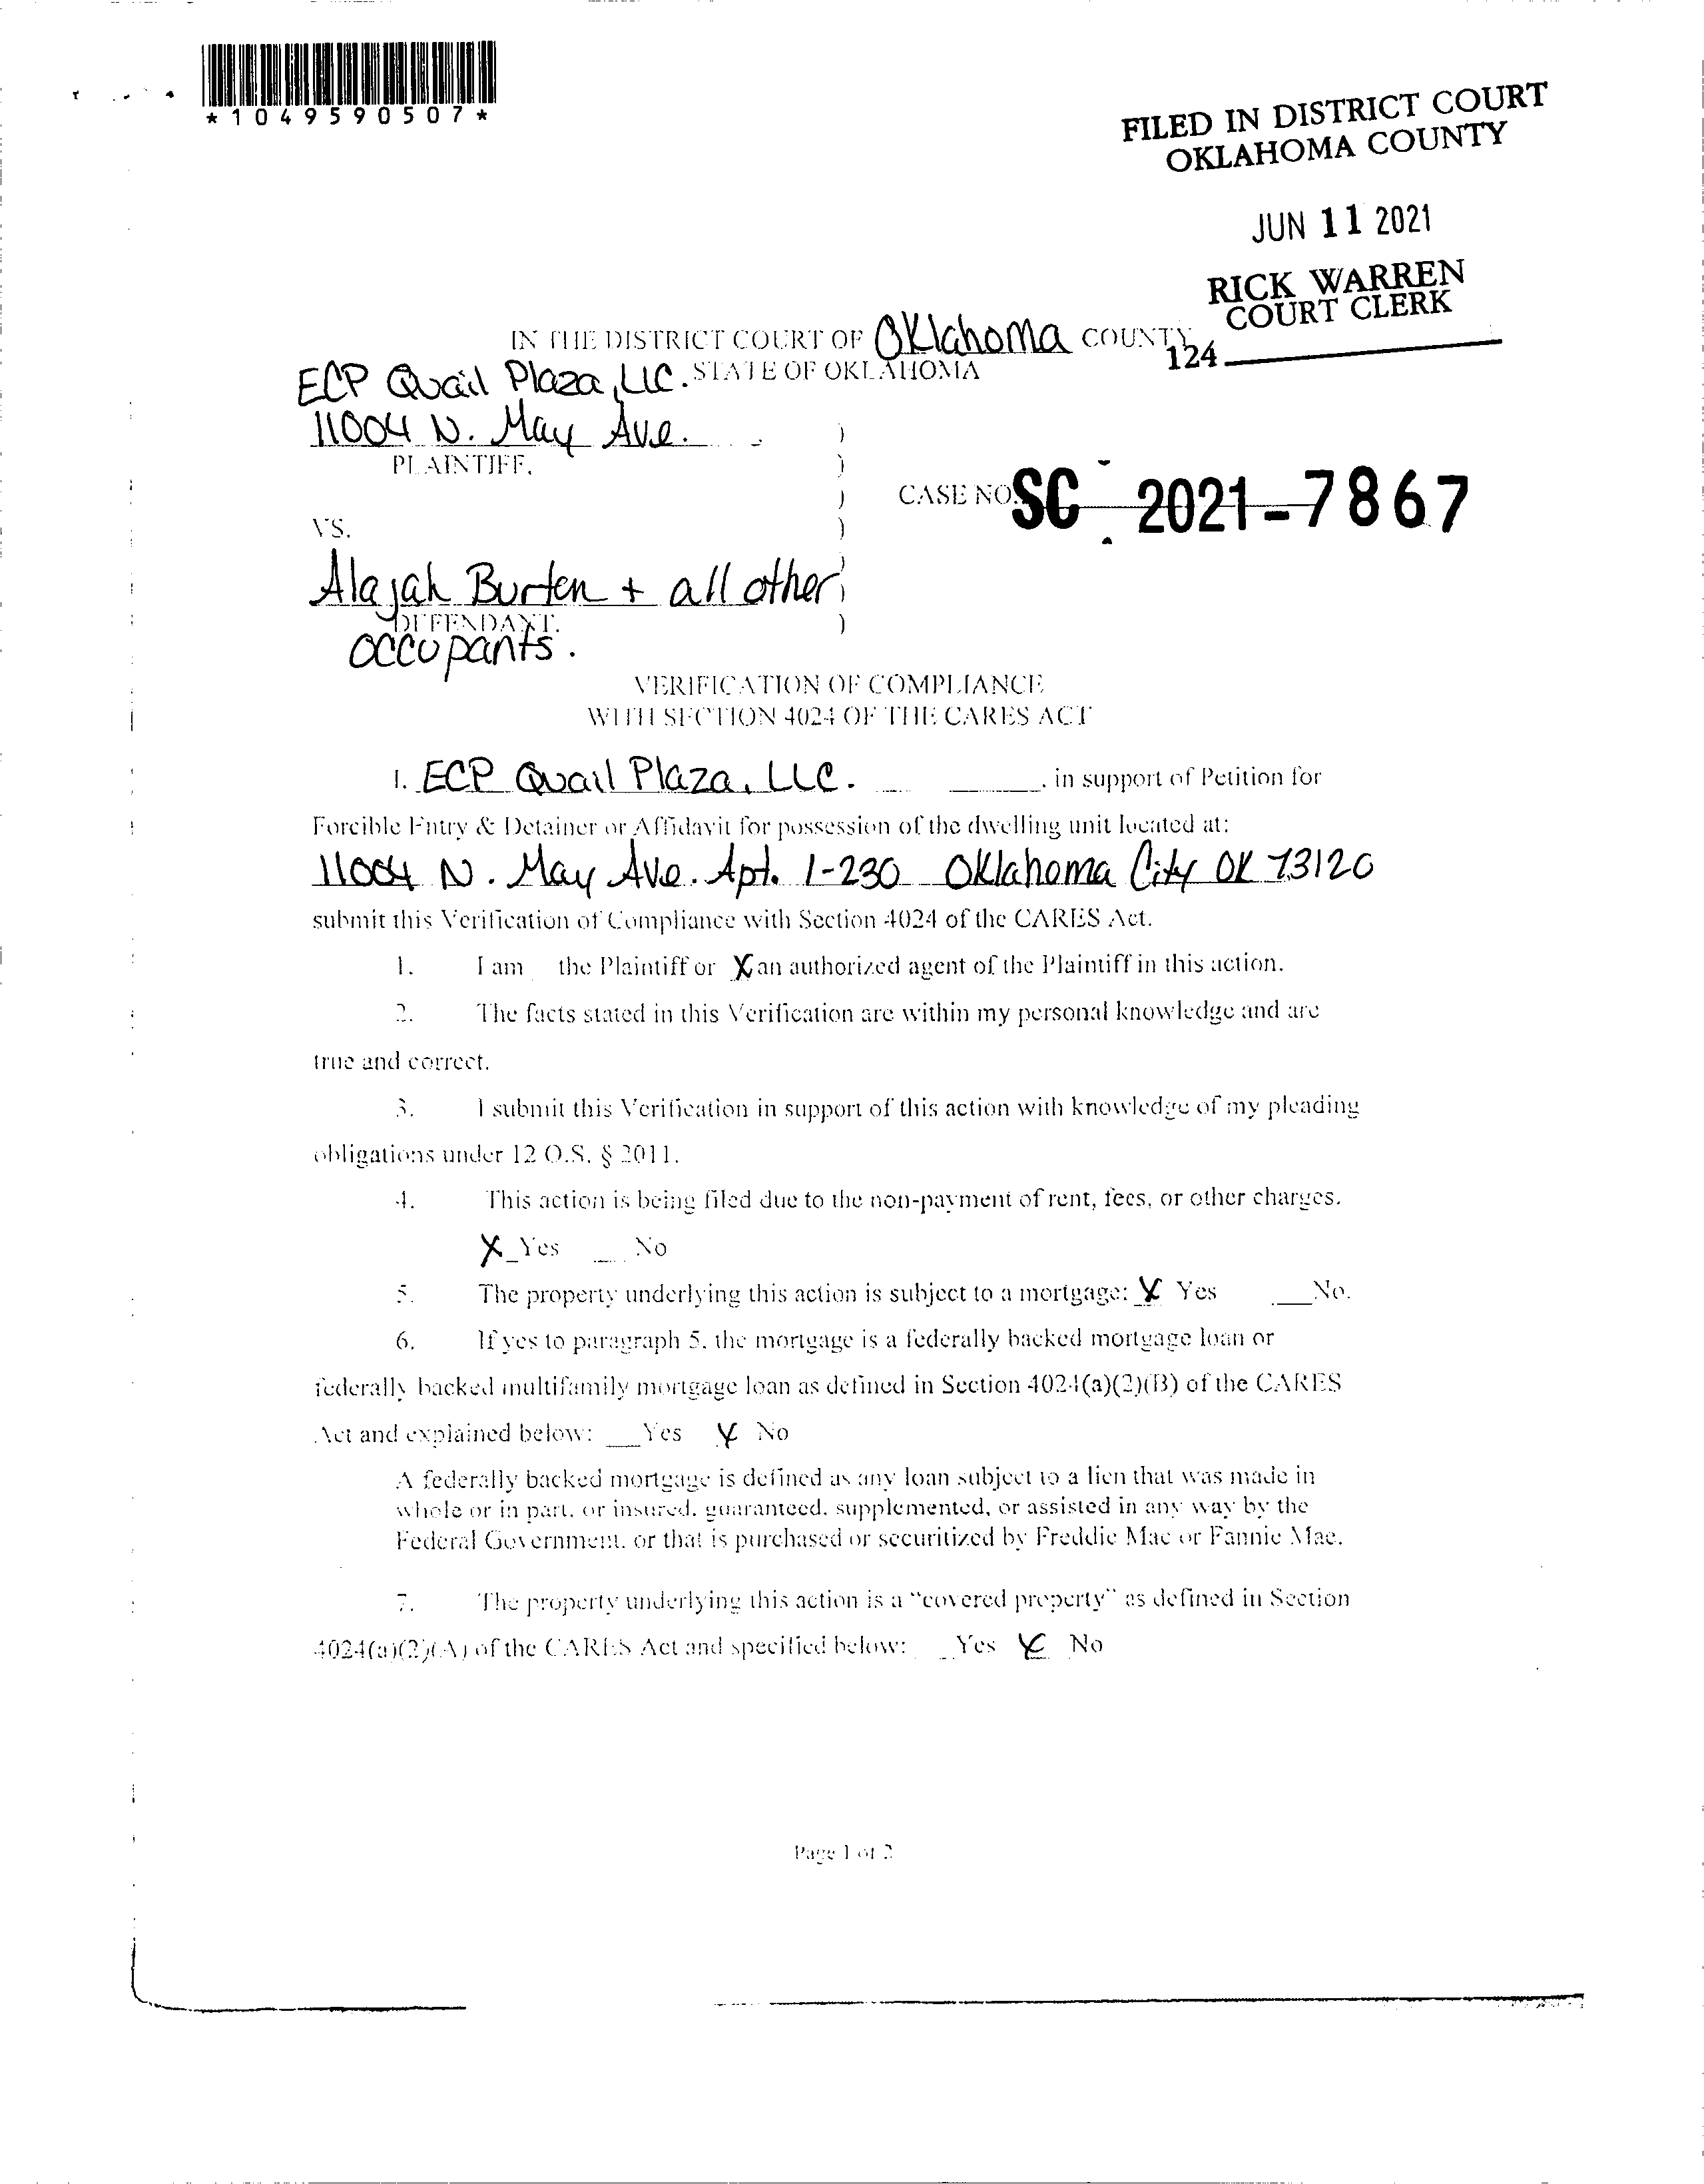 *1049590507*
FILED IN DISTRICT COURT
OKLAHOMA COUNTY
JUN 11 2021
RICK WARREN
COURT CLERK
124
IN THE DISTRICT COURT OF Oklahoma COUNTY
STATE OF OKLAHOMA
ECP Quail Plaza, LLC.
11004 N. May Ave. )
PLAINTIFF, )
CASE NO. SC - 2021-7867 )
VS. )
Alajah Burten + all other )
DEFENDANT. )
occupants.
VERIFICATION OF COMPLIANCE
WITH SECTION 4024 OF THE CARES ACT
I, ECP Quail Plaza, LLC. , in support of Petition for
Forcible Entry & Detainer or Affidavit for possession of the dwelling unit located at:
11004 N. May Ave. Apt. 1-230 Oklahoma City OK 73120
submit this Verification of Compliance with Section 4024 of the CARES Act.
1. I am __ the Plaintiff or X an authorized agent of the Plaintiff in this action.
2. The facts stated in this Verification are within my personal knowledge and are
true and correct.
3. I submit this Verification in support of this action with knowledge of my pleading
obligations under 12 O.S. § 2011.
4. This action is being filed due to the non-payment of rent, fees, or other charges.
X Yes __ No
5. The property underlying this action is subject to a mortgage: X Yes __ No.
6. If yes to paragraph 5, the mortgage is a federally backed mortgage loan or
federally backed multifamily mortgage loan as defined in Section 4024(a)(2)(B) of the CARES
Act and explained below: __ Yes X No
A federally backed mortgage is defined as any loan subject to a lien that was made in
whole or in part, or insured, guaranteed, supplemented, or assisted in any way by the
Federal Government, or that is purchased or securitized by Freddie Mac or Fannie Mae.
7. The property underlying this action is a "covered property" as defined in Section
4024(a)(2)(A) of the CARES Act and specified below: __ Yes X No
Page 1 of 2